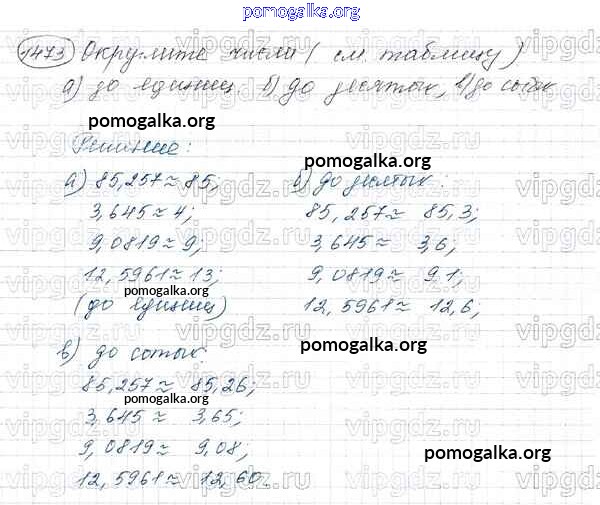 pomogalka.org
1473 Округлите числа (см. таблицу)
а) до единиц. б) до десятых, в) до сотых
pomogalka.org
Решение:
pomogalka.org
а) 85,257≈85;
3,645≈4;
9,0819≈9;
12,5961≈13;
pomogalka.org
(до единиц)
б) до десятых:
85,257≈ 85,3;
3,645≈ 3,6;
9,0819≈ 9 1;
12,5961≈ 12,6;
pomogalka.org
в) до сотых.
85,257≈ 85,26;
pomogalka.org
3,645≈ 3,65;
9,0819≈ 9,08;
12,5961≈ 12,60.
pomogalka.org
vipgdz.ru